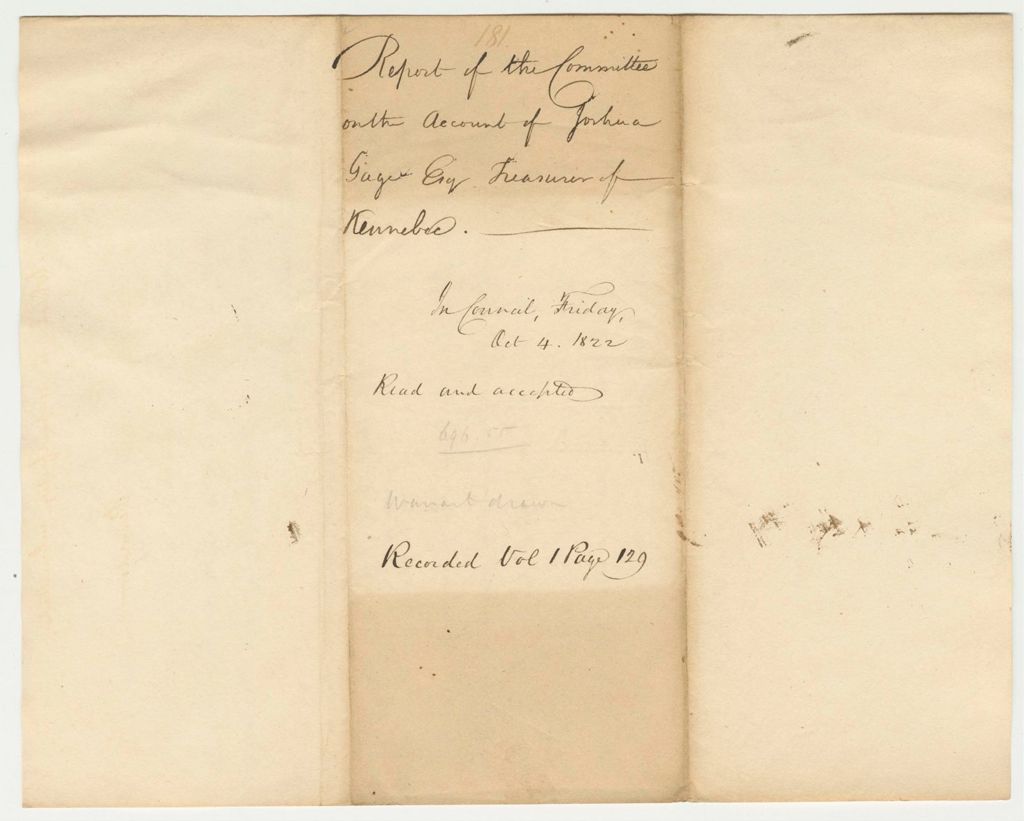 181
Report of the Committee
on the Account of Joshua
Gage Esq Treasurer of
Kennebec.
In Council, Friday,
Oct 4. 1822
Read and accepted
696.55
Warrant drawn
Recorded Vol 1 Page 129